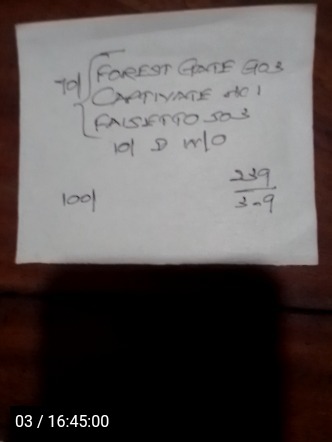 70/ FOREST GATE 903
CAPTIVATE 401
FALSETTO 503
10/ D W/O
100/
239
3-9
03 / 16:45:00